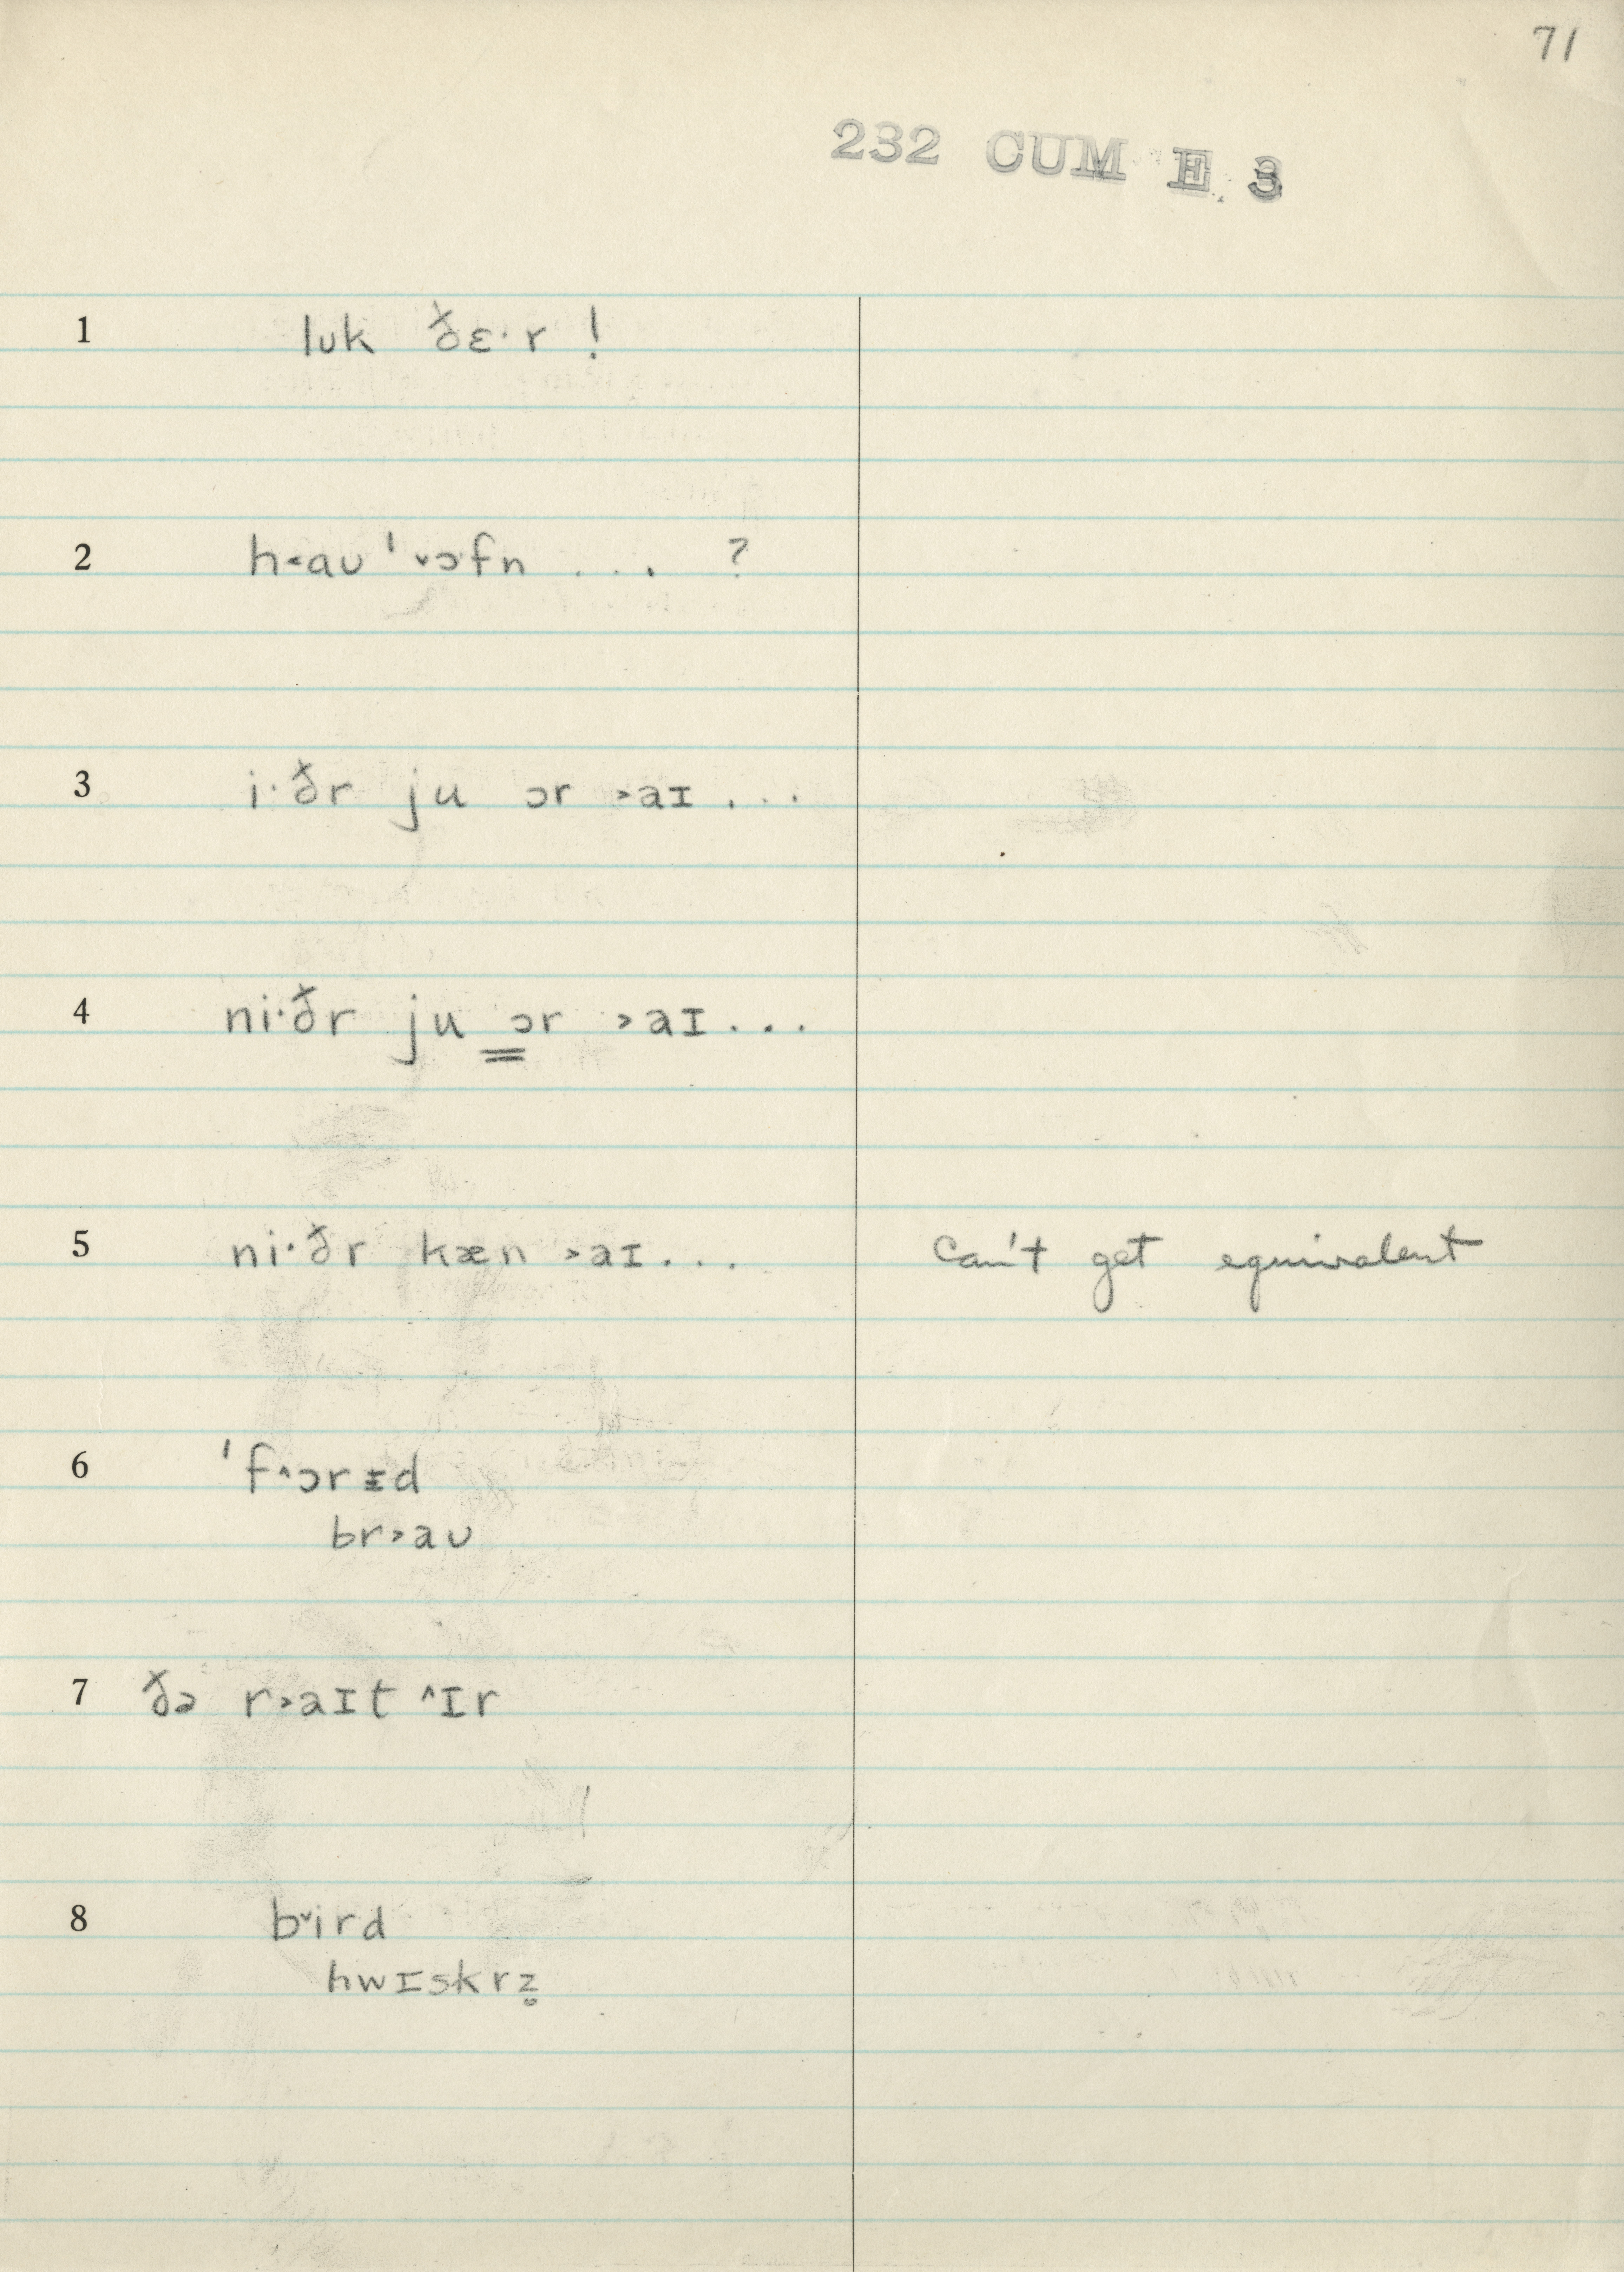 71
232 CUM E 3
1 lʊk ðɛ·r !
2 h˂aʊ ˈ˅ɔfn . . . ?
3 i·ðr ju ɔr ˃aɪ . . .
4 ni·ðr ju ɔr ˃aɪ . . .
5 ni·ðr kæn ˃aɪ . . . can't get equivalent
6 ˈf˄ɔrɪ̵d
br˃aʊ
7 ðə r˃aɪt ˄ɪr
8 b˅ird
hwɪskrz̥